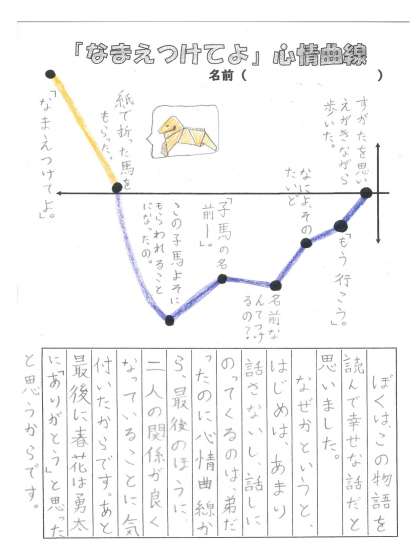 「なまえつけてよ」心情曲線
名前（　　）
すがたを思い
えがきながら
歩いた。
「もう行こう。」
なによ、その
たいど
名前な
んてつけ
るの？
「子馬の名
前ー」。
この子馬よそに
もらわれること
になったの。
紙で折った馬を
もらった。
「なまえつけてよ。」
ぼくは、この物語を
読んで幸せな話だと
思いました。
なぜかというと、
はじめは、あまり
話さないし、話しに
のってくるのは、弟だ
ったのに心情曲線か
ら、最後のほうに
二人の関係が良く
なっていることに気
付いたからです。あと
最後に春花は勇太
に「ありがとう」と思った
と思うからです。